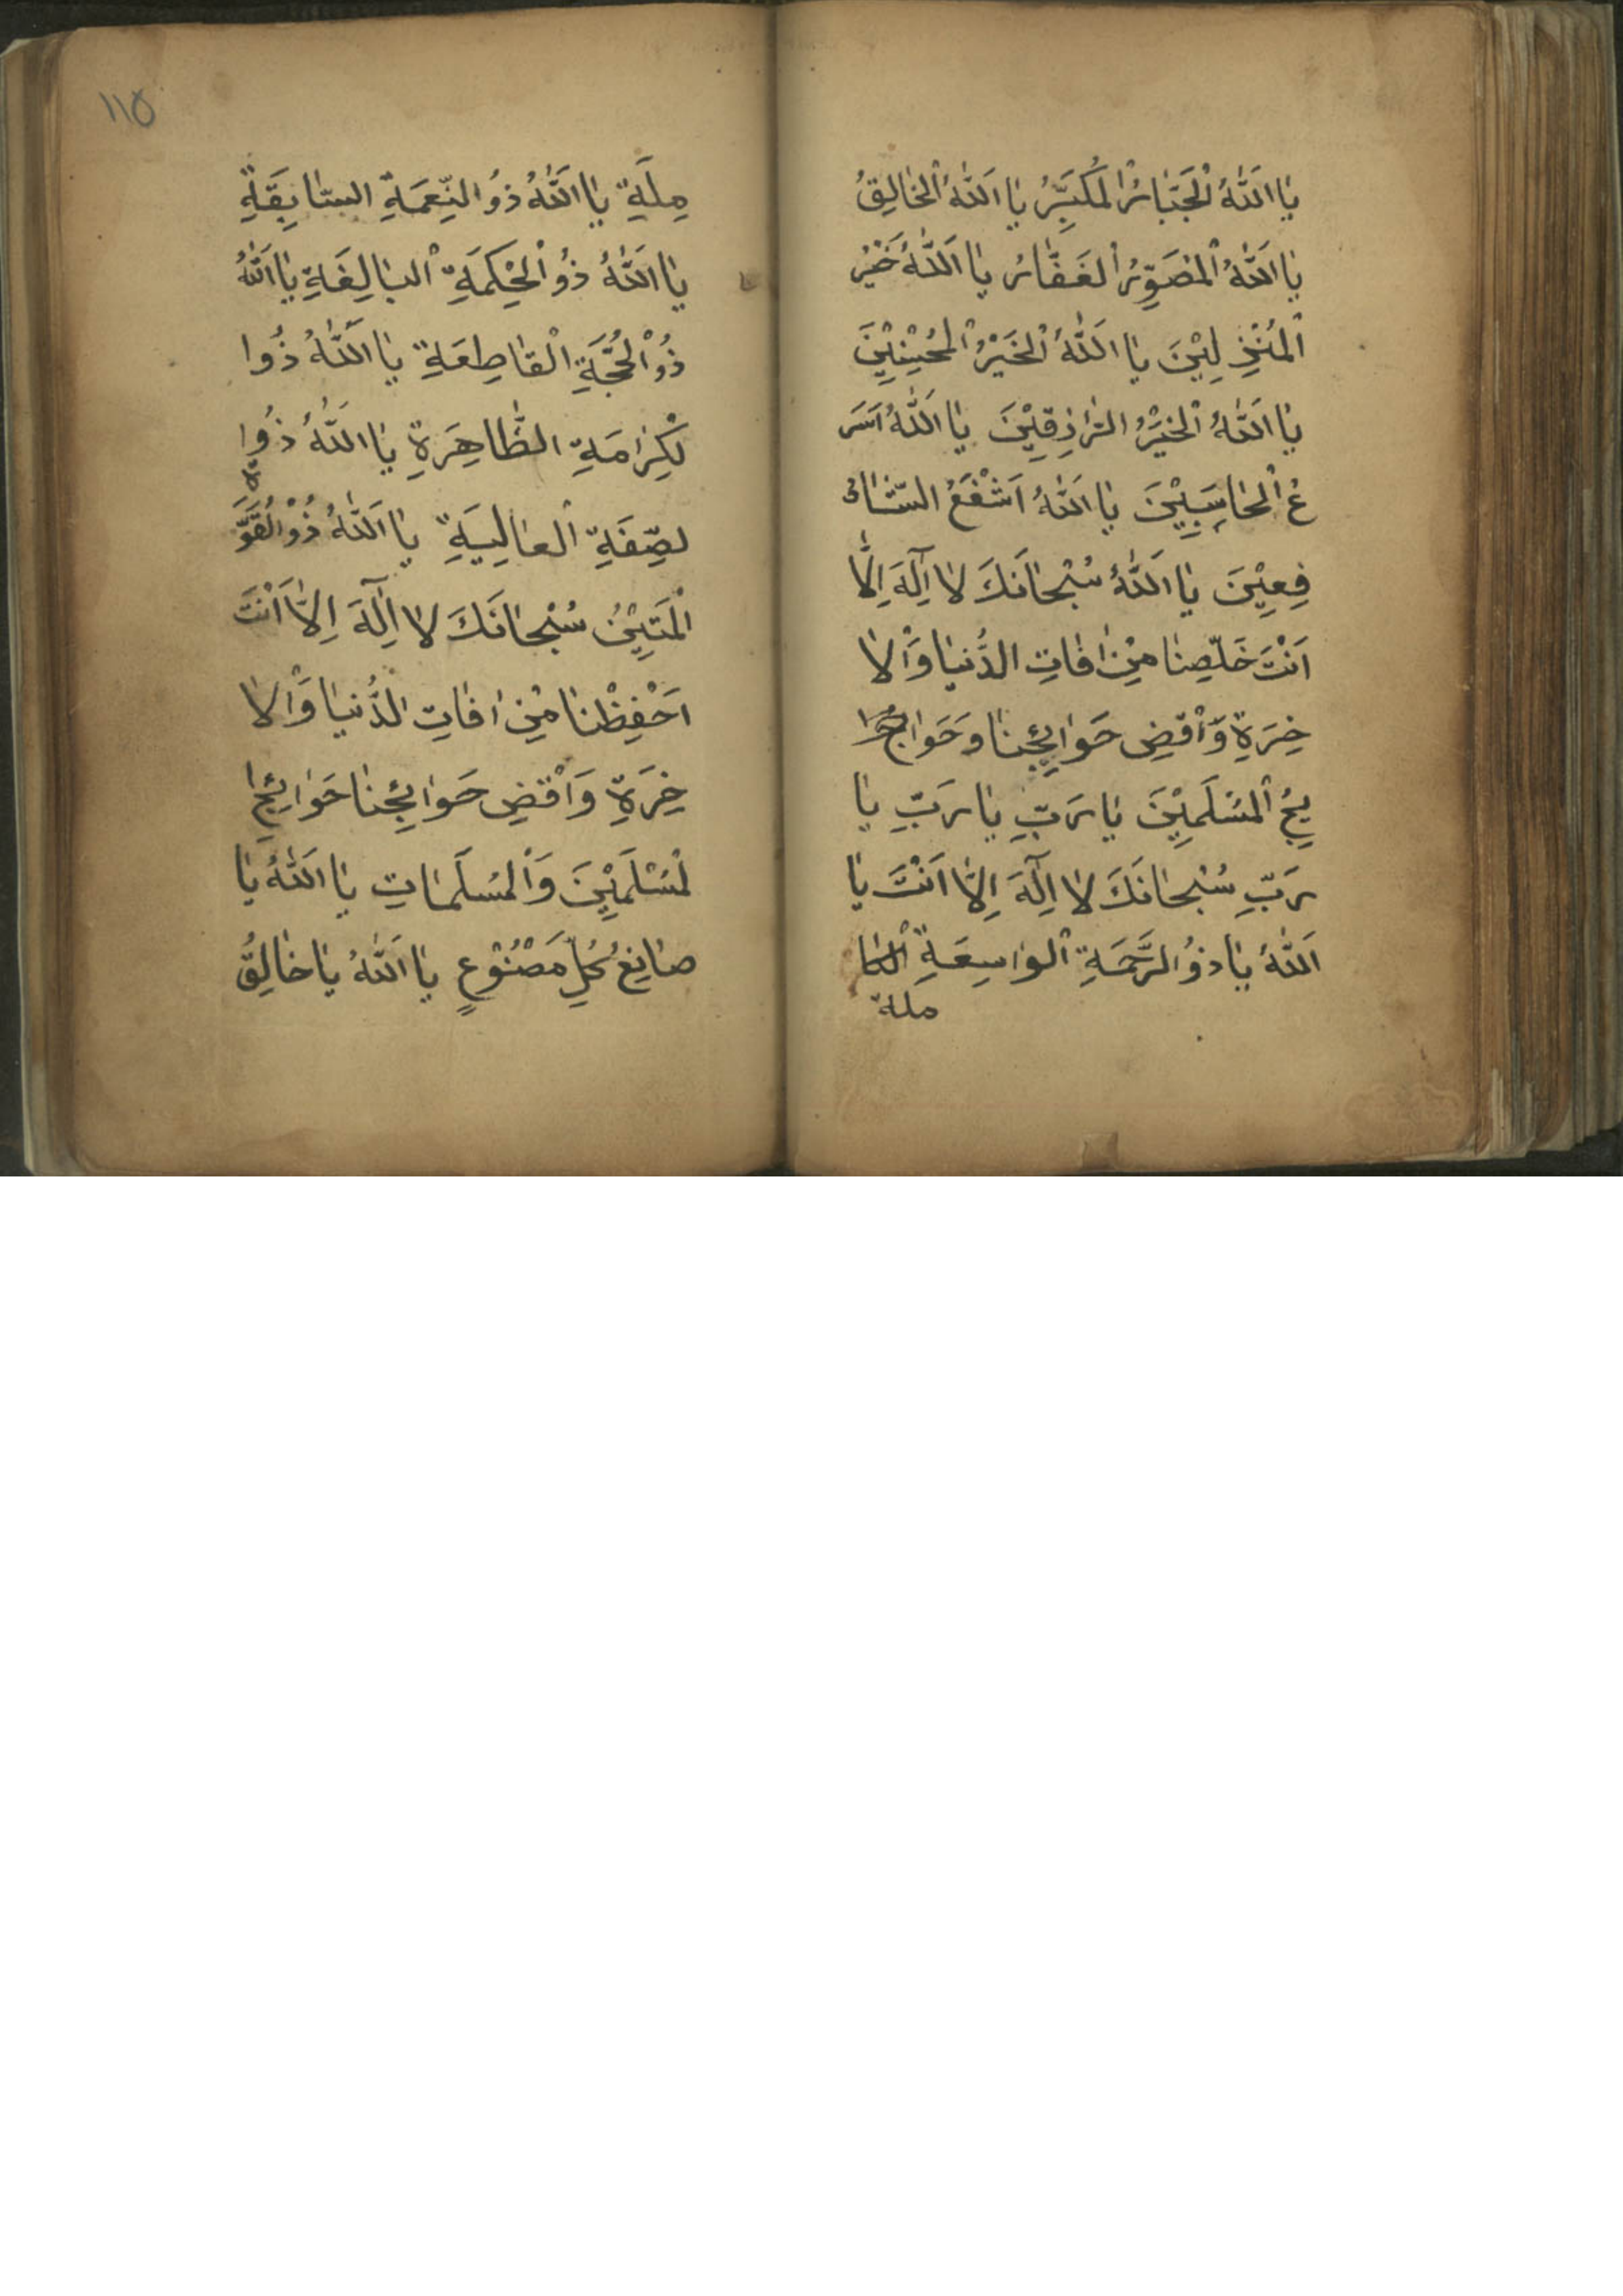 يا اَللّٰهُ الْجَبَّارُ الْمُكَبِّرُ يا اَللّٰهُ الْخالِقُ
يا اَللّٰهُ الْمُصَوِّرُ الْغَفَّارُ يا اَللّٰهُ خَيْرُ
الْمُنْزِلِيْنَ يا اَللّٰهُ الْخَيْرُ الْمُحْيِنِيْنَ
يا اَللّٰهُ الْخَيْرُ الرّازِقِيْنَ يا اَللّٰهُ اَسَرَ
عُ الْحاسِبِيْنَ يا اَللّٰهُ اَشْفَعُ السّشا
فِعِيْنَ يا اَللّٰهُ سُبْحانَكَ لا اِلٰهَ اِلّا
اَنْتَ خَلِّصِنا مِنْ افاتِ الدُّنيا وَالْا
خِرَةِ وَاَقْضِ حَوايِئِجِنا وَحَوا
يِجُ الْمُسْلَمِيْنَ يا رَبِّ يا رَبِّ يا
رَبِّ سُبْحانَكَ لا اِلٰهَ اِلّا اَنْتَ يا
اَللّٰهُ يا ذوُ الرَّحْمَةِ الْواسِعَةِ الْكا
ملة
١١٥
مِلَةِ يا اَللّٰهُ ذوُ النِّعمَةِ السّابِقَةِ
يا اَللّٰهُ ذوُ الْحِكمَةِ الْبالِغَةِ يا اَللّٰهُ
ذوُ الْحُجَّةِ الْقاطِعَةِ يا اَللّٰهُ ذوُا
لْكِرامَةِ الظّاهِرَةِ يا اَللّٰهُ ذوُا
لصِّفَةِ الْعالِيَةِ يا اَللّٰهُ ذوُ الْقُوَّ ةِ
الْمَتِيْنُ سُبْحانَكَ لا اِلٰهَ اِلّا اَنْتَ
اَحْفِظْنا مِنْ افاتِ الدُّنيا وَالْا
خِرَةِ وَاَقْضِ حَوائِجِنا حَوايِئِجِ ا
لْمُسْلَمِيْنَ وَالْمُسلَماتِ يا اَللّٰهُ يا
صانِعُ كُلِّ مَصْنُوْعٍ يا اَللّٰهُ يا خالِقُ